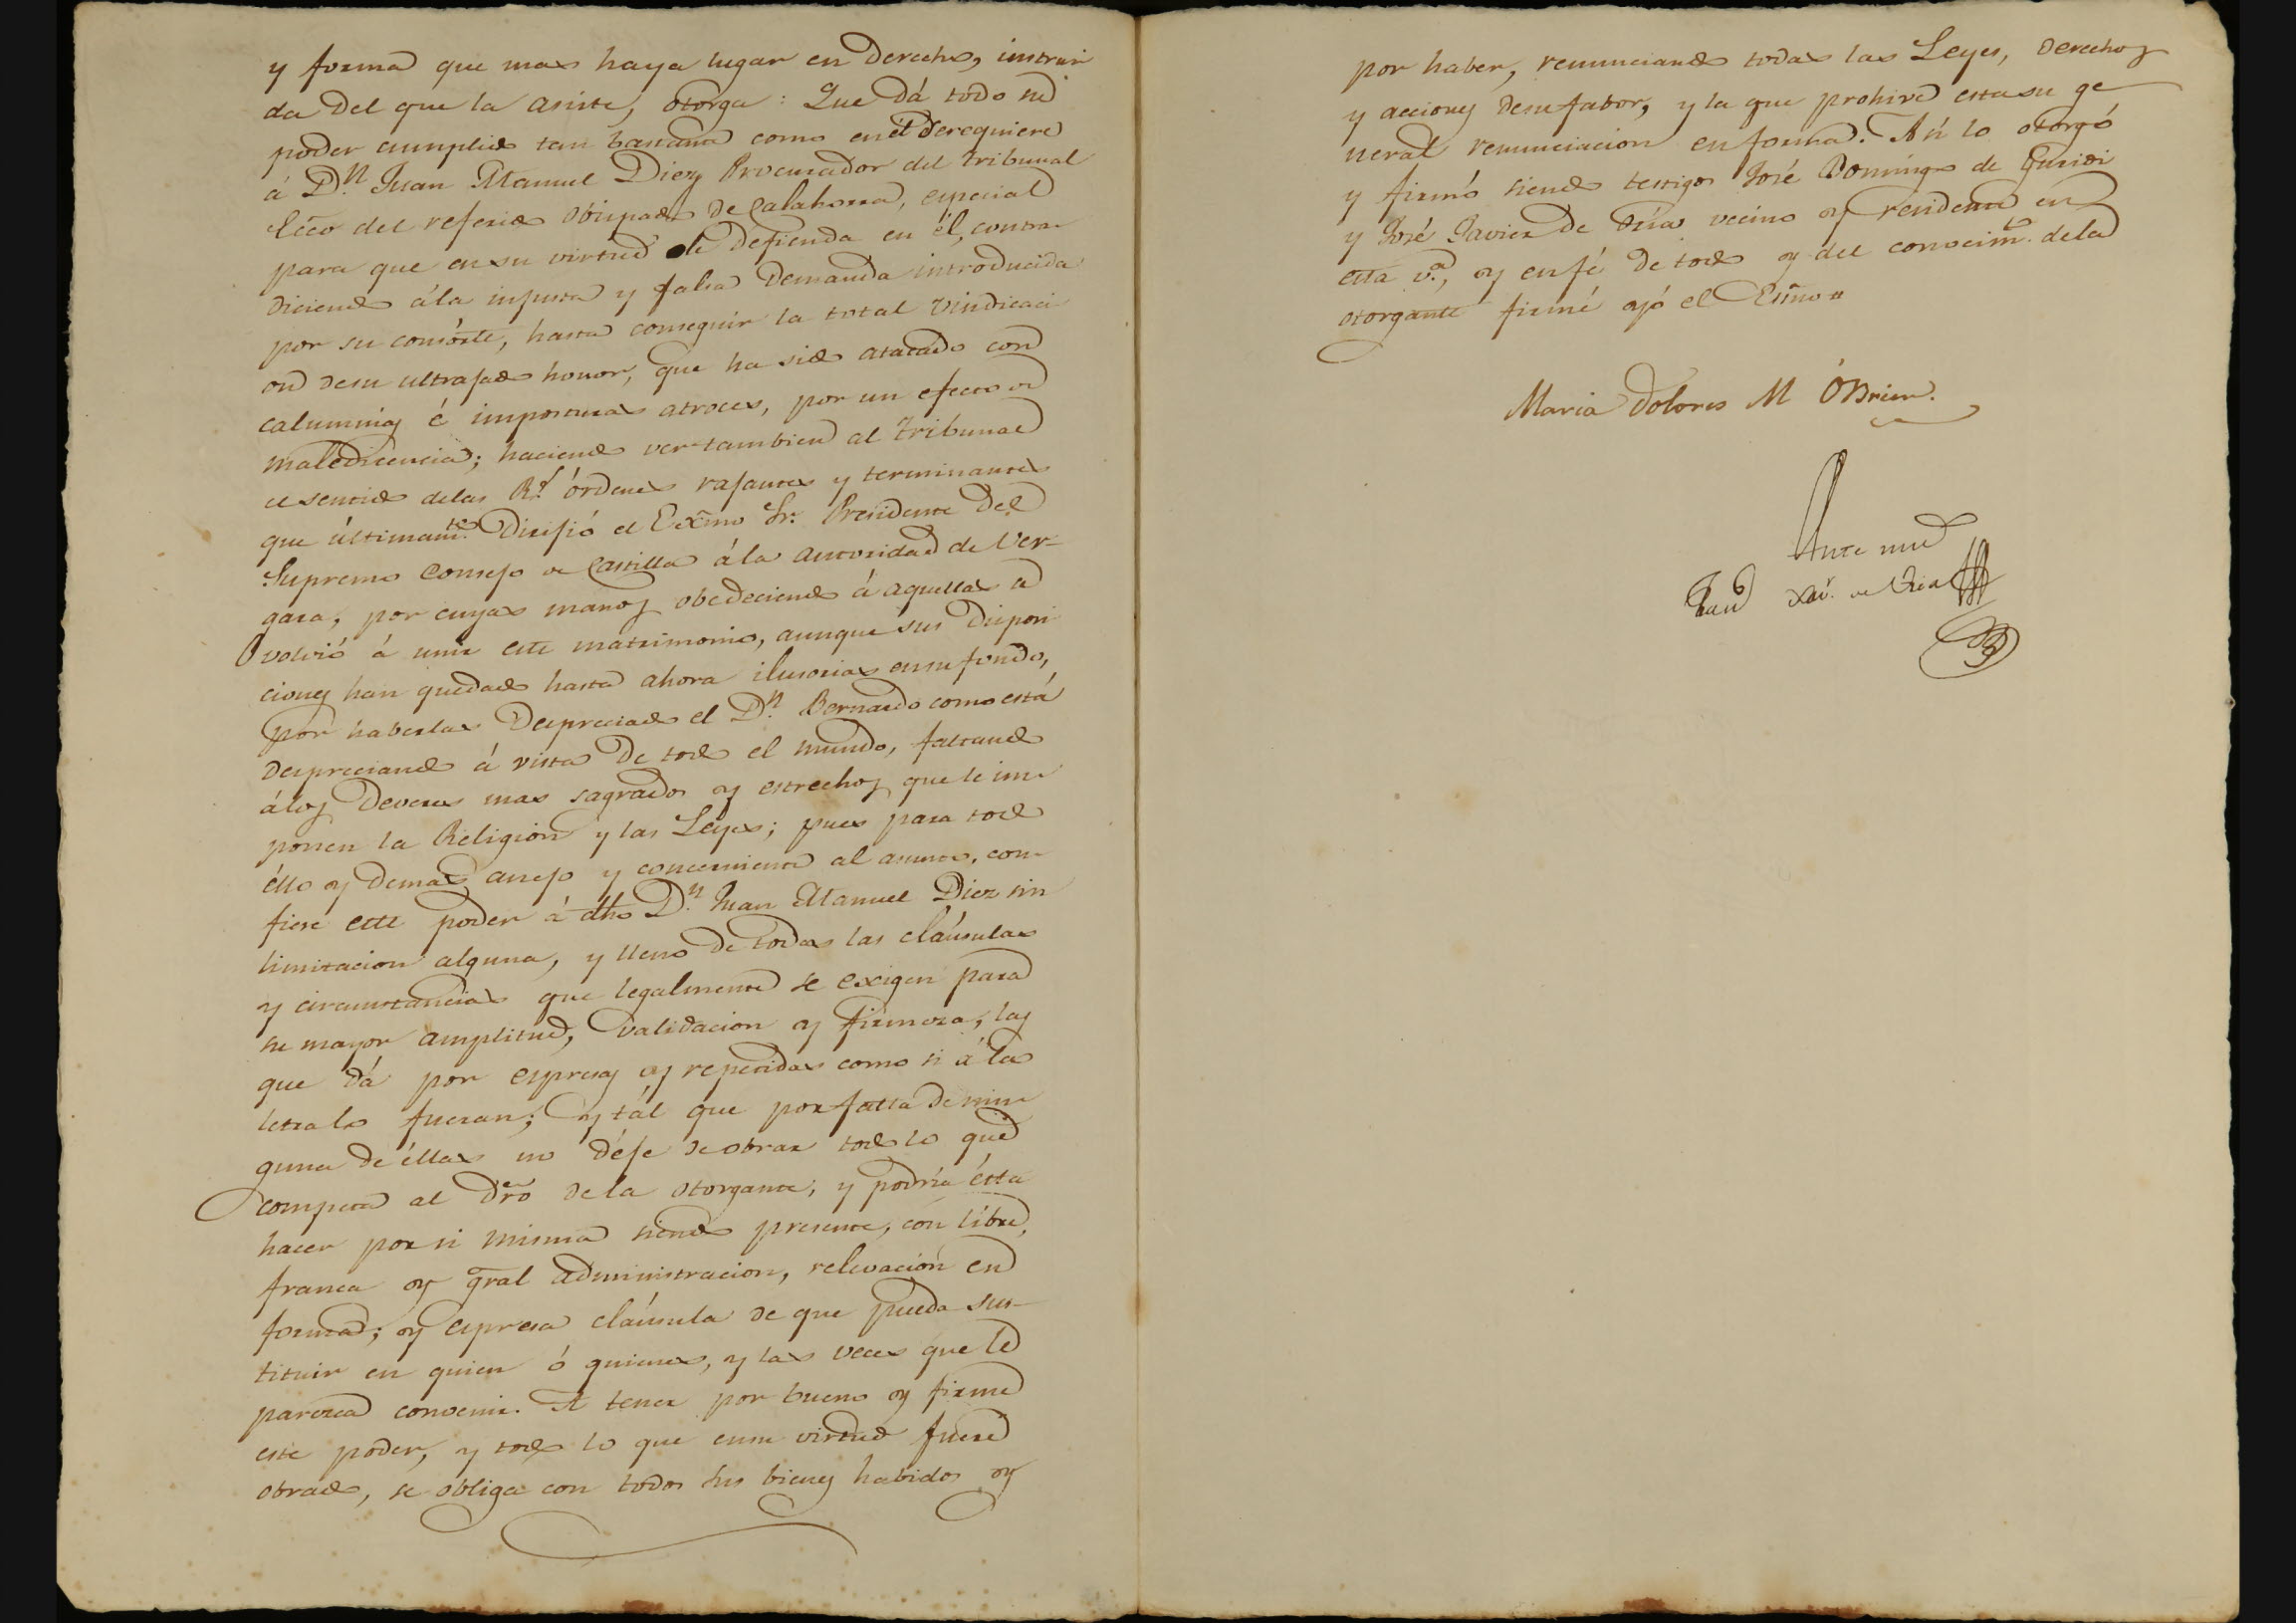 y forma que mas haya lugar en Derecho, instrui
da del que la asiste, otorga: Que dá todo su
poder cumplido tan bastante como en él se requiere
á D.n Juan Manuel Diez Procurador del Tribunal
Ecco del referido Obispado de Calahorra, especial
para que en su virtud le defienda en él, contra-
diciendo á la injusta y falsa Demanda introducida
por su consorte, hasta conseguir la total vindicaci
on de su ultrajado honor, que ha sido atacado con
calumnias é imposturas atroces, por un efecto de
maledicencia; haciendo ver tambien al Tribunal
el sentido de las R.s órdenes rajantes y terminantes
que últimam.te Dirijió el Exmo Sr. Presidente del
Supremo Consejo de Castilla á la autoridad de Ver-
gara, por cuyas manos obedeciendo á aquellas se
volvió á unir este matrimonio, aunque sus Disposi
ciones han quedado hasta ahora ilusorias en su fondo,
por haberlas Despreciado el D.n Bernardo como está
despreciando á vista de todo el mundo, faltando
á los Deveres mas sagrados y estrechos que le im-
ponen la Religion y las Leyes; pues para todo
éllo y demas anejo y concerniente al asunto, con-
fiere este poder á dho D.n Juan Manuel Diez sin
limitacion alguna, y lleno de todas las cláusulas
y circunstancias que legalmente se exigen para
su mayor amplitud, validacion y firmeza, las
que dá por espresas y repetidas como si á la
letra lo fueran; y tál que por falta de nin-
guna de éllas no déje de obrar todo lo que
competa al dro de la otorgante, y podría ésta
hacer por si misma siendo presente, con libre,
franca y gral administracion, relevación en
forma; y espresa cláusula de que pueda sus-
tituir en quien ó quienes, y las veces que le
parezca convenir. A tener por bueno y firme
este poder, y todo lo que en su virtud fuere
obrado, se obliga con todos sus bienes habidos y
por haber, renunciando todas las Leyes, derechos
y acciones de su fabor, y la que prohive esta su ge
neral renunciacion en forma. Asi lo otorgó
y firmó siendo testigos José Domingo de Guridi
y José Javier de Uria vecino y residente en
esta v.a, y en fé de todo y del conocim.to de la
otorgante firmé yó el Esno =
Maria Dolores M ÓBrien.
Ante mi
Juan Xav. de Uria